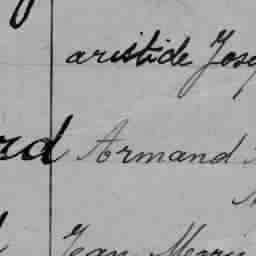 aristide Jose
rd Armand
Jean Marie